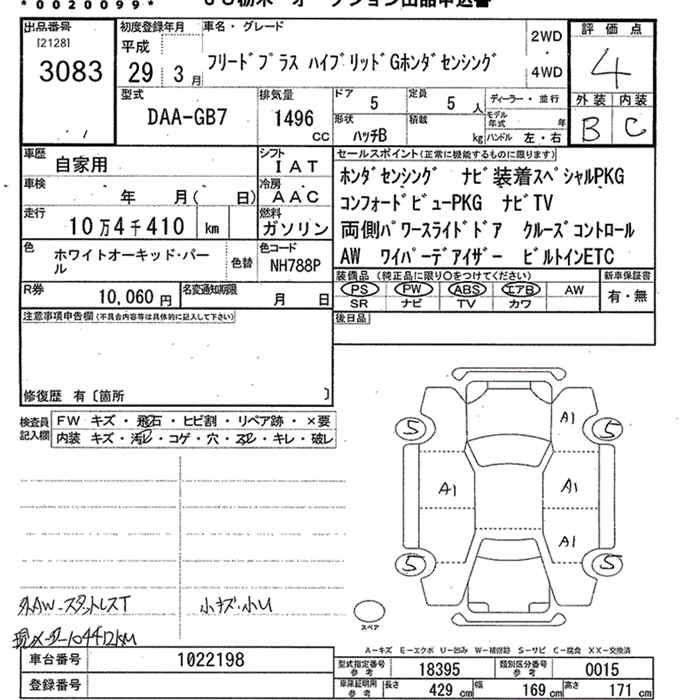 *0020099*
出品番号
[2128]
3083
初度登録年月
平成
29年 3月
車名・グレード
フリードプラス ハイブリッドGホンダセンシング
2WD
4WD
評価点
4
外装 内装
B C
型式
DAA-GB7
排気量
1496 CC
ドア 5
定員 5 人
ディーラー・並行
モデル年式 年
形状 ハッチB
積載 kg
ハンドル 左・右
車歴 自家用
シフト IAT
車検 年 月( 日)
冷房 AAC
走行 10万4千410 km
燃料 ガソリン
色 ホワイトオーキッド・パール
色替
色コード NH788P
R券 10,060円
名変通知期限 月 日
セールスポイント(正常に機能するものに限ります)
ホンダセンシング ナビ装着スペシャルPKG
コンフォートビューPKG ナビTV
両側パワースライドドア クルーズコントロール
AW ワイパーデアイザー ビルトインETC
装備品(純正品に限り○をつけてください)
新車保証書
PS PW ABS エアB AW
SR ナビ TV カワ
有・無
後日品
注意事項申告欄(不具合内容等は具体的に記入して下さい)
修復歴 有〔箇所 〕
検査員記入欄
FW キズ・飛石・ヒビ割・リペア跡・×要
内装 キズ・汚レ・コゲ・穴・スレ・キレ・破レ
A1
5 5
A1 A1
A1
5 5
スペア
外AW-スタットレスT
小キズ・小U
現メーター104412KM
A-キズ E-エクボ U-凹み W-補修跡 S-サビ C-腐食 XX-交換済
車台番号 1022198
登録番号
型式指定番号 参考 18395
類別区分番号 参考 0015
車検証明用 参考 長さ 429 cm 幅 169 cm 高さ 171 cm